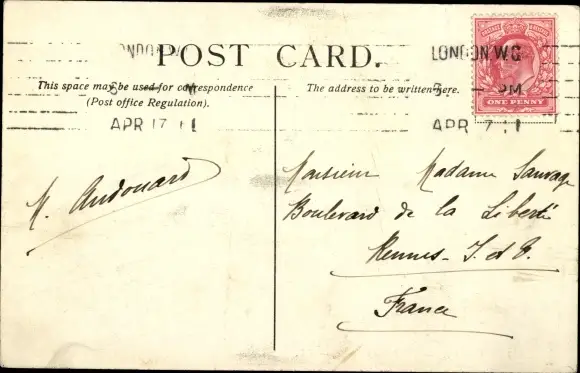 POST CARD.
LONDON W.C
APR 17 11
LONDON W.C
PM
APR 17 11
ONE PENNY
This space may be used for correspondence
(Post office Regulation).
The address to be written here.
M. Audouard
Monsieur Madame Sauvage
Boulevard de la Liberté
Rennes - I. et V.
France